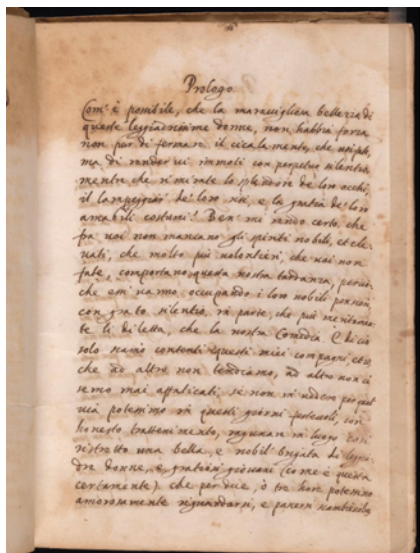 Prologo.
Com'è possibile, che la maravigliosa bellezza di
queste leggiadrissime donne, non habbia forza
non pur di fermare il cicalamento, che
ma di render vi immoti con perpetuo silentio,
mentre che rimirate lo splendor de' loro occhi,
il lampeggiar de' loro risi, e la gratia de' loro
amabili costumi! Ben mi rendo certo, che
fra voi non mancano gli spiriti nobili, et ele-
vati, che molto più volontieri, che voi non
fate, comportano questa nostra tardanza, percio-
che essi vanno occupando i loro nobili pensieri,
con grato silentio, in parte, che più
te li diletta, che la nostra Comedia. E di cio
solo siamo contenti questi miei compagni, et io,
che ad altro non tendiamo, ad altro non ci
semo mai affaticati, se non in vedere per qual
via potessimo in questi giorni con
honesto trattenimento, ragunar in luogo così
ristretto una bella, e nobil brigata di leggia-
dre donne, e gratiosi giovani (come è questa
certamente) che per due, o tre hore potessino
amorosamente riguardarsi, e